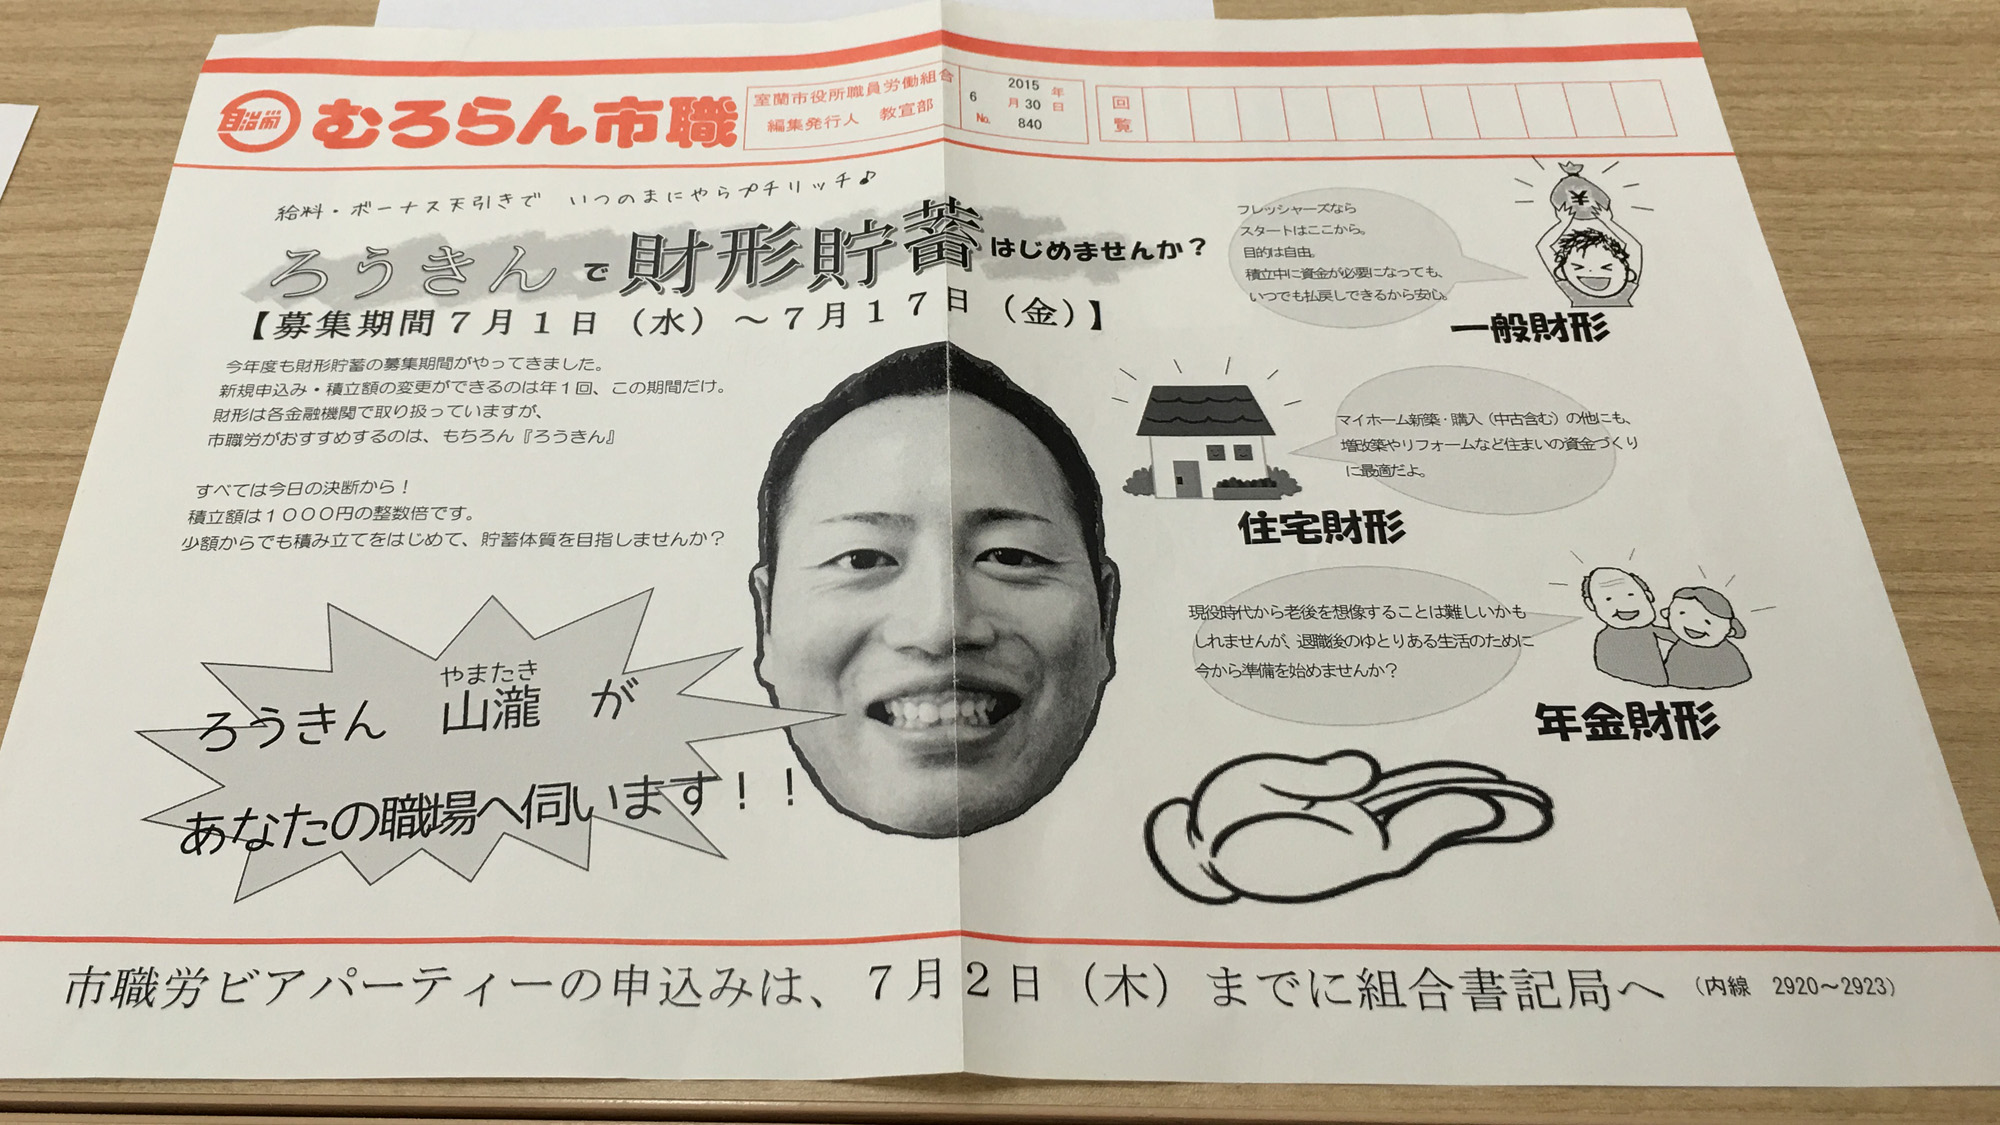 自治労
むろらん市職
室蘭市役所職員労働組合
編集発行人 教宣部
2015 年
6 月 30 日
No. 840
回覧
給料・ボーナス天引きで いつのまにやらプチリッチ♪
ろうきんで財形貯蓄はじめませんか？
【募集期間７月１日（水）～７月１７日（金）】
今年度も財形貯蓄の募集期間がやってきました。
新規申込み・積立額の変更ができるのは年１回、この期間だけ。
財形は各金融機関で取り扱っていますが、
市職労がおすすめするのは、もちろん『ろうきん』
すべては今日の決断から！
積立額は１０００円の整数倍です。
少額からでも積み立てをはじめて、貯蓄体質を目指しませんか？
やまたき
ろうきん 山瀧 が
あなたの職場へ伺います！！
フレッシャーズなら
スタートはここから。
目的は自由。
積立中に資金が必要になっても、
いつでも払戻しできるから安心。
¥
一般財形
マイホーム新築・購入（中古含む）の他にも、
増改築やリフォームなど住まいの資金づくり
に最適だよ。
住宅財形
現役時代から老後を想像することは難しいかも
しれませんが、退職後のゆとりある生活のために
今から準備を始めませんか？
年金財形
市職労ビアパーティーの申込みは、７月２日（木）までに組合書記局へ（内線 2920～2923）